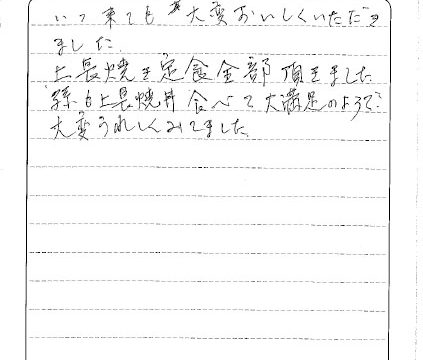 いつ来ても 大変おいしくいただき
ました。
上長焼き定食全部頂きました
孫も上長焼丼食べて大満足のようで
大変うれしくみてました。